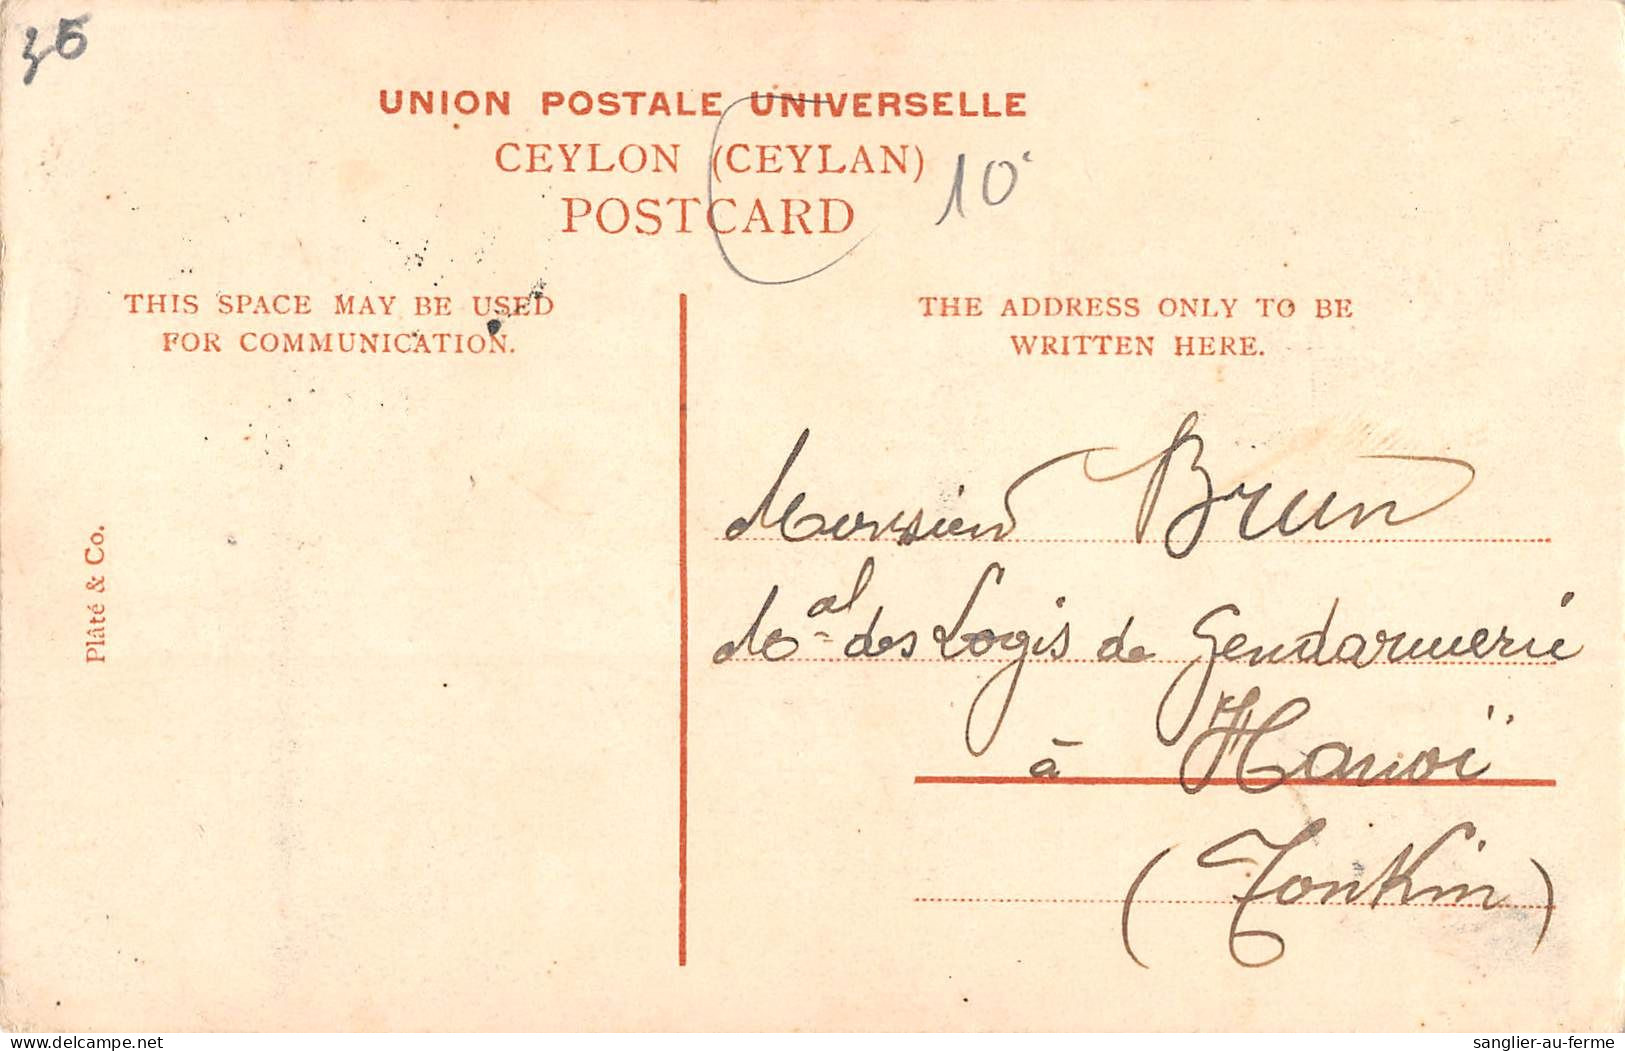 36
UNION POSTALE UNIVERSELLE
CEYLON (CEYLAN)
POSTCARD
10
THIS SPACE MAY BE USED
FOR COMMUNICATION.
THE ADDRESS ONLY TO BE
WRITTEN HERE.
Plâté & Co.
Monsieur Brun
Mal des Logis de Gendarmerie
à Hanoï
(Tonkin)
delcampe.net
sanglier-au-ferme